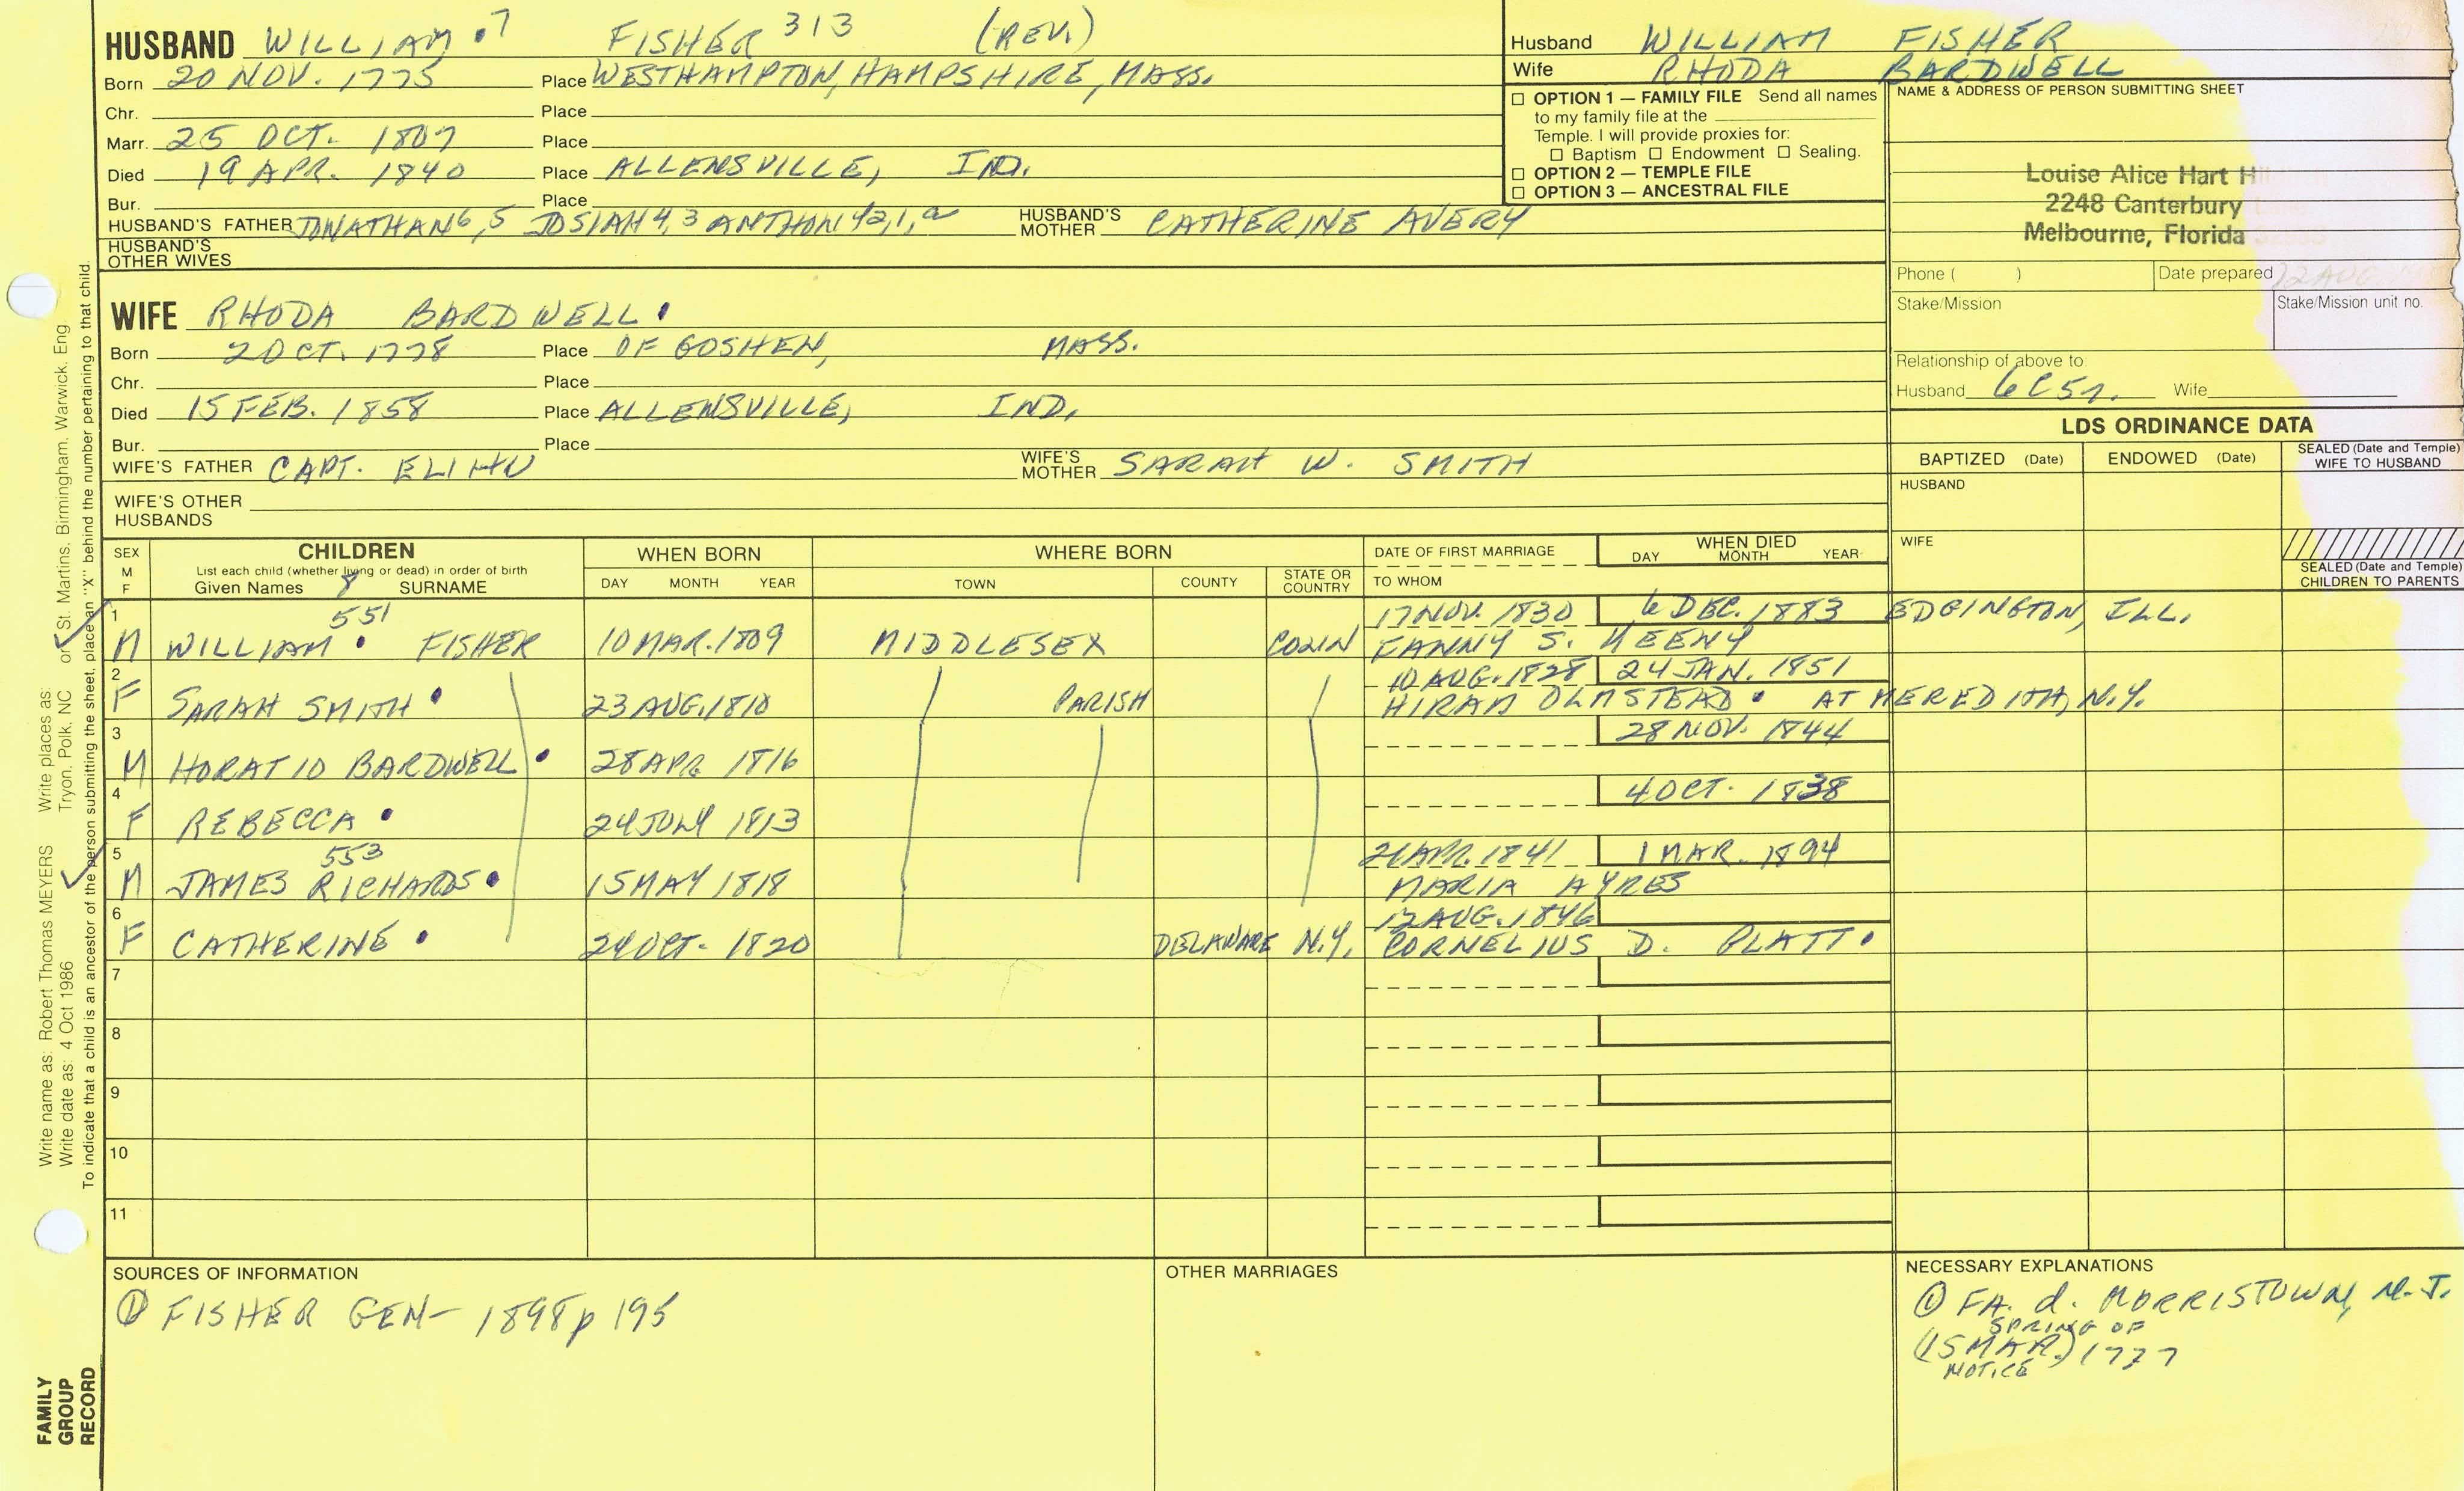 HUSBAND WILLIAM . 7 FISHER 313 (REV.)
Born 20 NOV. 1775 Place WESTHAMPTON, HAMPSHIRE, MASS.
Chr. Place
Marr. 25 OCT. 1807 Place
Died 19 APR. 1840 Place ALLENSVILLE, IND.
Bur. Place
HUSBAND'S FATHER JONATHAN 6,5 JOSIAH 4,3 ANTHONY 2,1,a HUSBAND'S MOTHER CATHERINE AVERY
HUSBAND'S OTHER WIVES
Husband WILLIAM FISHER
Wife RHODA BARDWELL
☐ OPTION 1 — FAMILY FILE Send all names
to my family file at the
Temple. I will provide proxies for:
☐ Baptism ☐ Endowment ☐ Sealing.
☐ OPTION 2 — TEMPLE FILE
☐ OPTION 3 — ANCESTRAL FILE
NAME & ADDRESS OF PERSON SUBMITTING SHEET
Louise Alice Hart
2248 Canterbury
Melbourne, Florida
Phone ( ) Date prepared
Stake/Mission Stake/Mission unit no.
Relationship of above to
Husband 6C5r. Wife
WIFE RHODA BARDWELL .
Born 2 OCT. 1778 Place OF GOSHEN, MASS.
Chr. Place
Died 15 FEB. 1858 Place ALLENSVILLE, IND.
Bur. Place
WIFE'S FATHER CAPT. ELIHU WIFE'S MOTHER SARAH W. SMITH
WIFE'S OTHER
HUSBANDS
LDS ORDINANCE DATA
BAPTIZED (Date) ENDOWED (Date) SEALED (Date and Temple) WIFE TO HUSBAND
HUSBAND
WIFE
SEALED (Date and Temple) CHILDREN TO PARENTS
SEX M F CHILDREN WHEN BORN WHERE BORN DATE OF FIRST MARRIAGE WHEN DIED
List each child (whether living or dead) in order of birth
Given Names 8 SURNAME DAY MONTH YEAR TOWN COUNTY STATE OR COUNTRY TO WHOM DAY MONTH YEAR
1 551 17 NOV. 1830 6 DEC. 1883 EDGINGTON, ILL.
M WILLIAM . FISHER 10 MAR. 1809 MIDDLESEX CONN FANNY S. KEENY
2 10 AUG. 1828 24 JAN. 1851
F SARAH SMITH . 23 AUG. 1810 PARISH HIRAM OLMSTEAD . AT MEREDITH, N.Y.
3 28 NOV. 1844
M HORATIO BARDWELL . 28 APR 1816
4 4 OCT. 1838
F REBECCA . 24 JULY 1813
5 553 21 APR. 1841 1 MAR. 1894
M JAMES RICHARDS . 15 MAY 1818 MARIA AYRES
6 12 AUG. 1846
F CATHERINE . 24 OCT. 1820 DELAWARE N.Y. CORNELIUS D. PLATT .
7
8
9
10
11
SOURCES OF INFORMATION
① FISHER GEN- 1898 p 195
OTHER MARRIAGES
NECESSARY EXPLANATIONS
① FA. d. MORRISTOWN, N.J.
SPRING OF
(15 MAR.) 1777
NOTICE
Write name as: Robert Thomas MEYERS Write places as: or St. Martins, Birmingham, Warwick, Eng.
Write date as: 4 Oct 1986 Tryon, Polk, NC
To indicate that a child is an ancestor of the person submitting the sheet, place an "X" behind the number pertaining to that child.
FAMILY
GROUP
RECORD